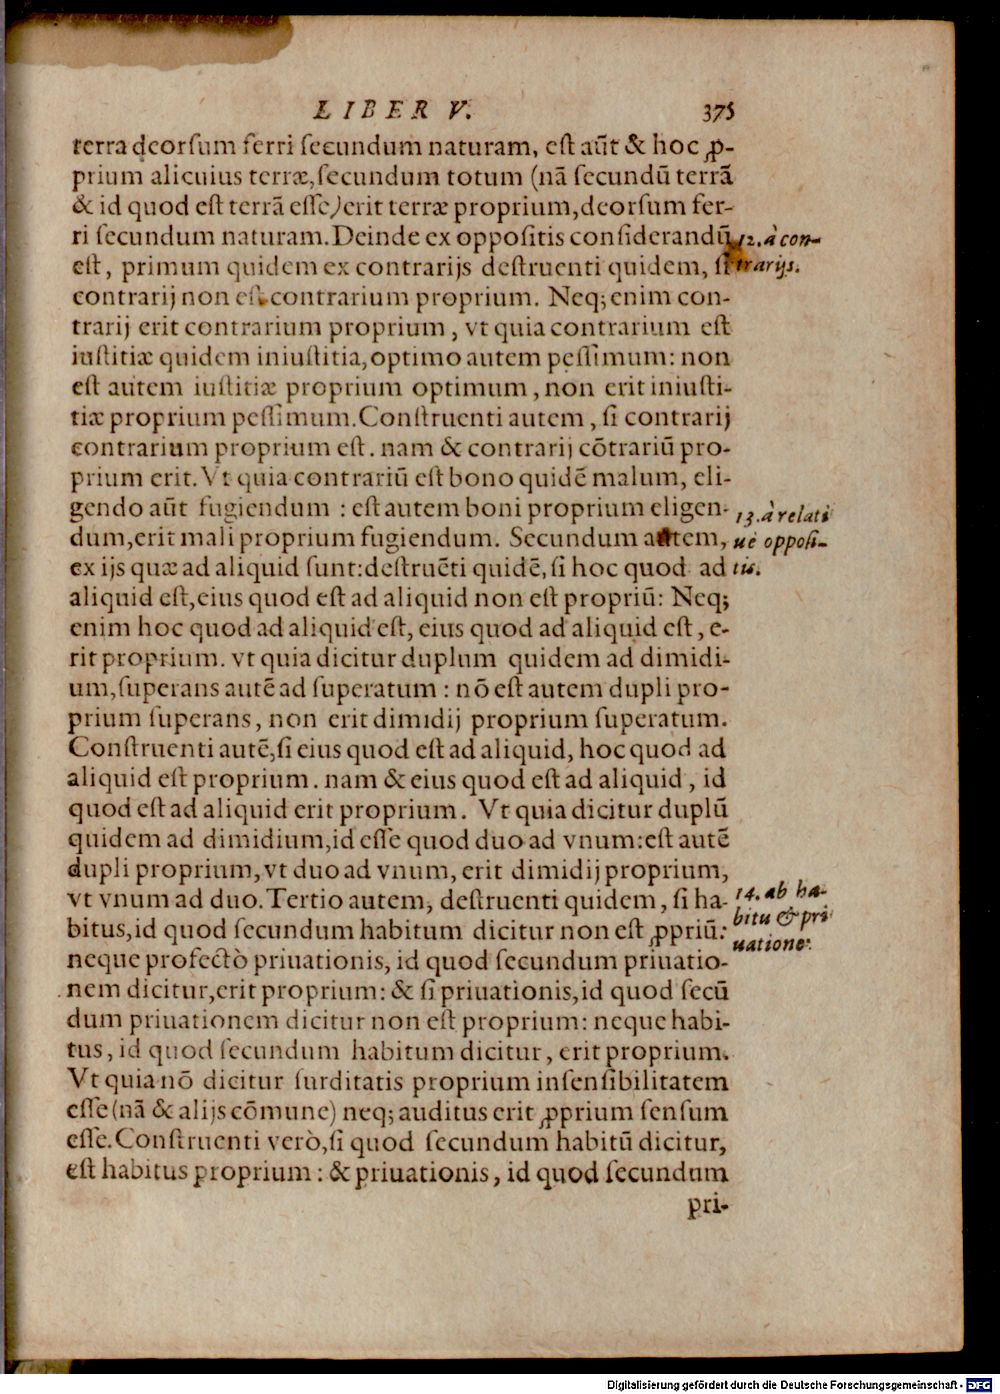 LIBER V. 375
terra deorſum ferri ſecundum naturam, eſt aūt & hoc ꝓ-
prium alicuius terræ, ſecundum totum (nā ſecundū terrā
& id quod eſt terrā eſſe) erit terræ proprium, deorſum fer-
ri ſecundum naturam. Deinde ex oppoſitis conſiderandū
eſt, primum quidem ex contrarijs deſtruenti quidem, ſi
contrarij non eſt contrarium proprium. Neq; enim con-
trarij erit contrarium proprium, vt quia contrarium eſt
iuſtitiæ quidem iniuſtitia, optimo autem peſſimum: non
eſt autem iuſtitiæ proprium optimum, non erit iniuſti-
tiæ proprium peſſimum. Conſtruenti autem, ſi contrarij
contrarium proprium eſt. nam & contrarij cōtrariū pro-
prium erit. Vt quia contrariū eſt bono quidē malum, eli-
gendo aūt fugiendum : eſt autem boni proprium eligen-
dum, erit mali proprium fugiendum. Secundum autem,
ex ijs quæ ad aliquid ſunt: deſtruēti quidē, ſi hoc quod ad
aliquid eſt, eius quod eſt ad aliquid non eſt propriū: Neq;
enim hoc quod ad aliquid eſt, eius quod ad aliquid eſt, e-
rit proprium. vt quia dicitur duplum quidem ad dimidi-
um, ſuperans autē ad ſuperatum : nō eſt autem dupli pro-
prium ſuperans, non erit dimidij proprium ſuperatum.
Conſtruenti autē, ſi eius quod eſt ad aliquid, hoc quod ad
aliquid eſt proprium. nam & eius quod eſt ad aliquid, id
quod eſt ad aliquid erit proprium. Vt quia dicitur duplū
quidem ad dimidium, id eſſe quod duo ad vnum: eſt autē
dupli proprium, vt duo ad vnum, erit dimidij proprium,
vt vnum ad duo. Tertio autem, deſtruenti quidem, ſi ha-
bitus, id quod ſecundum habitum dicitur non eſt ꝓpriū:
neque profectò priuationis, id quod ſecundum priuatio-
nem dicitur, erit proprium: & ſi priuationis, id quod ſecū
dum priuationem dicitur non eſt proprium: neque habi-
tus, id quod ſecundum habitum dicitur, erit proprium.
Vt quia nō dicitur ſurditatis proprium inſenſibilitatem
eſſe (nā & alijs cōmune) neq; auditus erit ꝓprium ſenſum
eſſe. Conſtruenti verò, ſi quod ſecundum habitū dicitur,
eſt habitus proprium : & priuationis, id quod ſecundum
pri-
12. à con-
trarijs.
13. à relati
uè oppoſi-
tis.
14. ab ha-
bitu & pri
uatione.
Digitalisierung gefördert durch die Deutsche Forschungsgemeinschaft - DFG